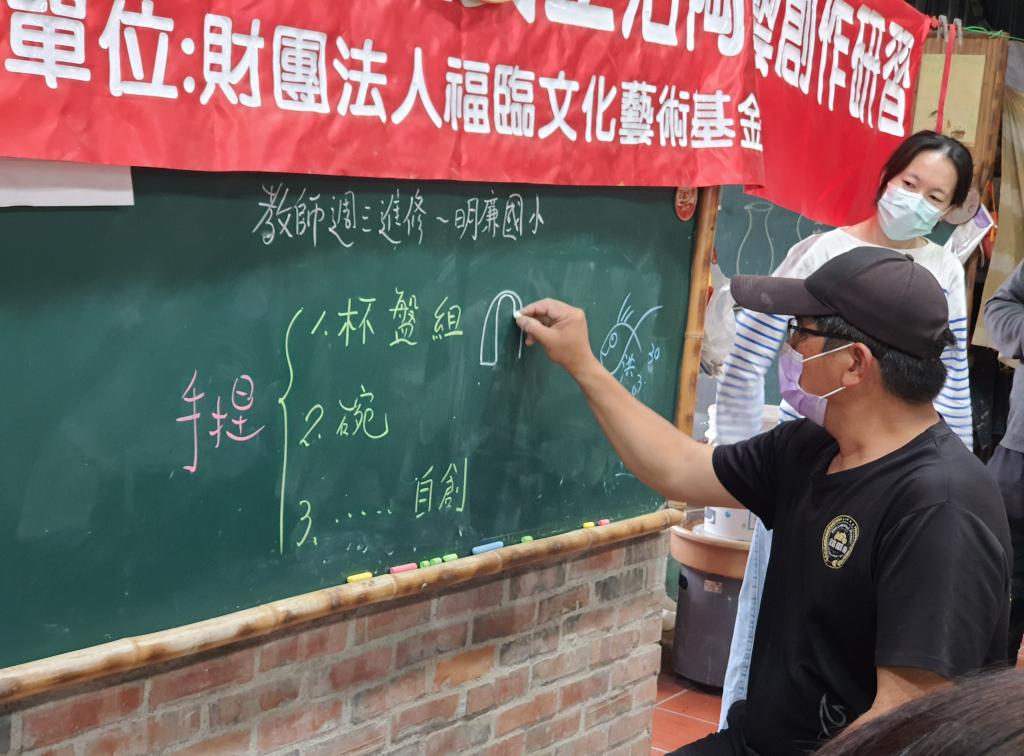 生活陶藝創作研習
單位:財團法人福臨文化藝術基金
教師週三進修~明廉國小
手捏
1.杯盤組
2.碗
3.……自創